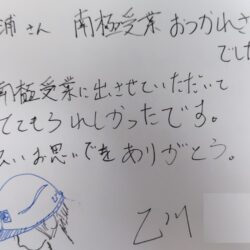 浦さん 南極受業 おつかれさ
でした
南極受業に出させていただいて
とてもうれしかったです。
いいお思いでをありがとう。
乙川